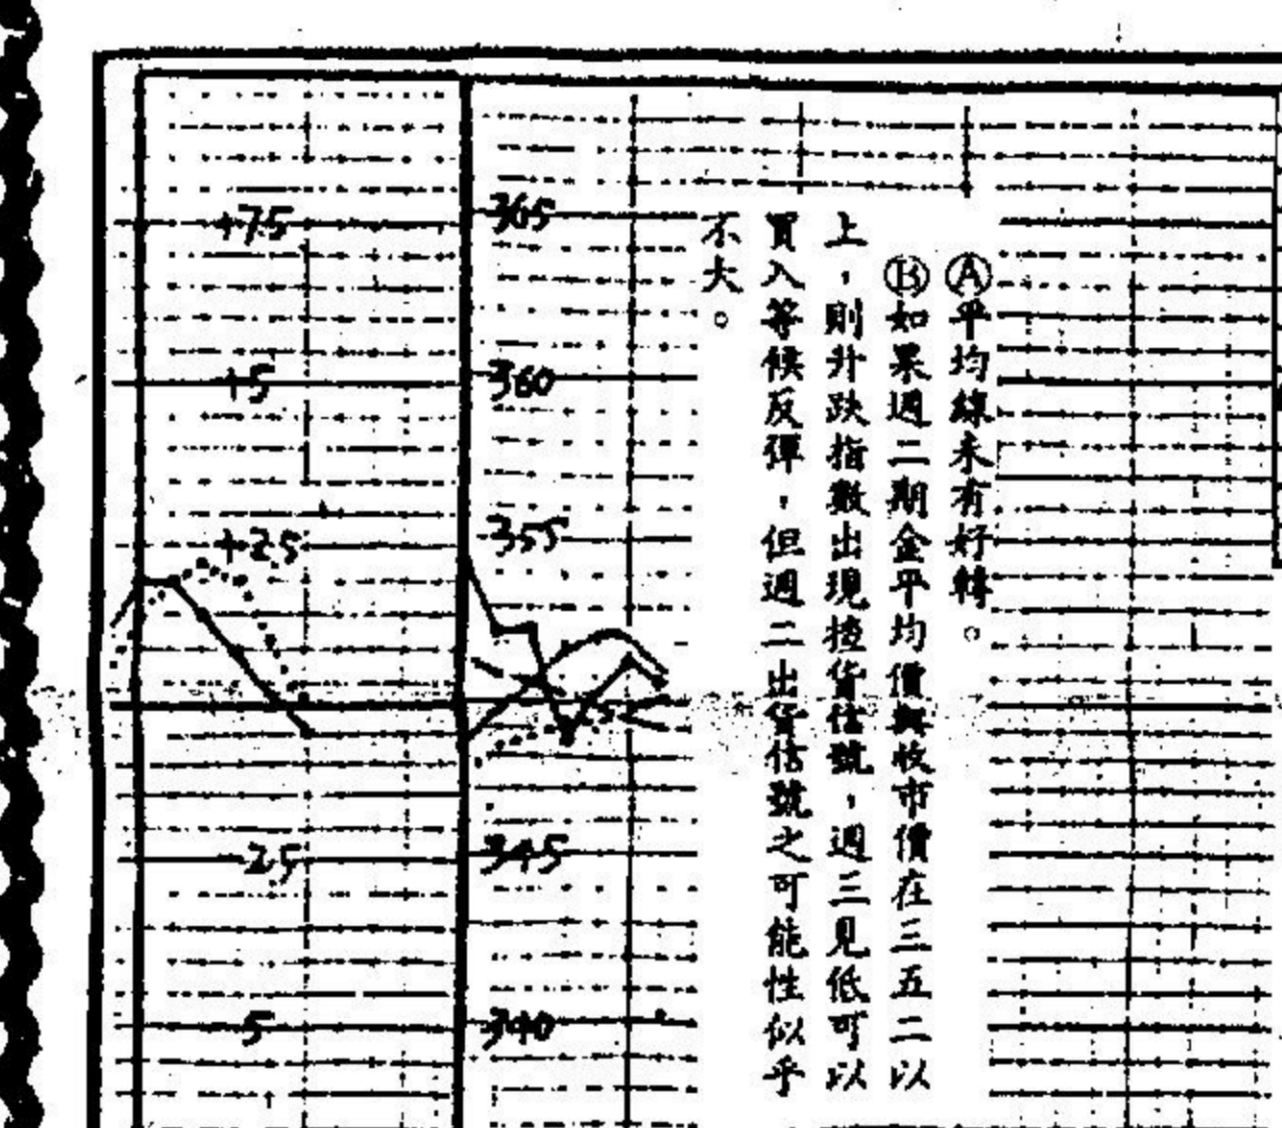 Ⓐ平均線未有好轉。
Ⓑ如果週二期金平均價與收市價在三五二以
上，則升跌指數出現揸貨信號，週三見低可以
買入等候反彈，但週二出貨信號之可能性似乎
不大。
+7.5
+5
+2.5
-2.5
-5
365
360
355
345
340